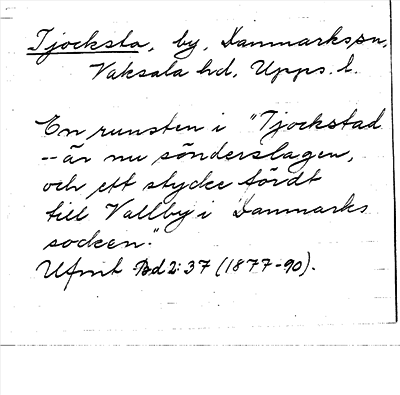 Tjocksta, by, Danmarks sn,
Vaksala hd, Upps. l.
En runsten i "Tjockstad
-- är nu sönderslagen,
och ett stycke fördt
till Vallby i Danmarks
socken."
Ufmt Bd 2:37 (1877-90).